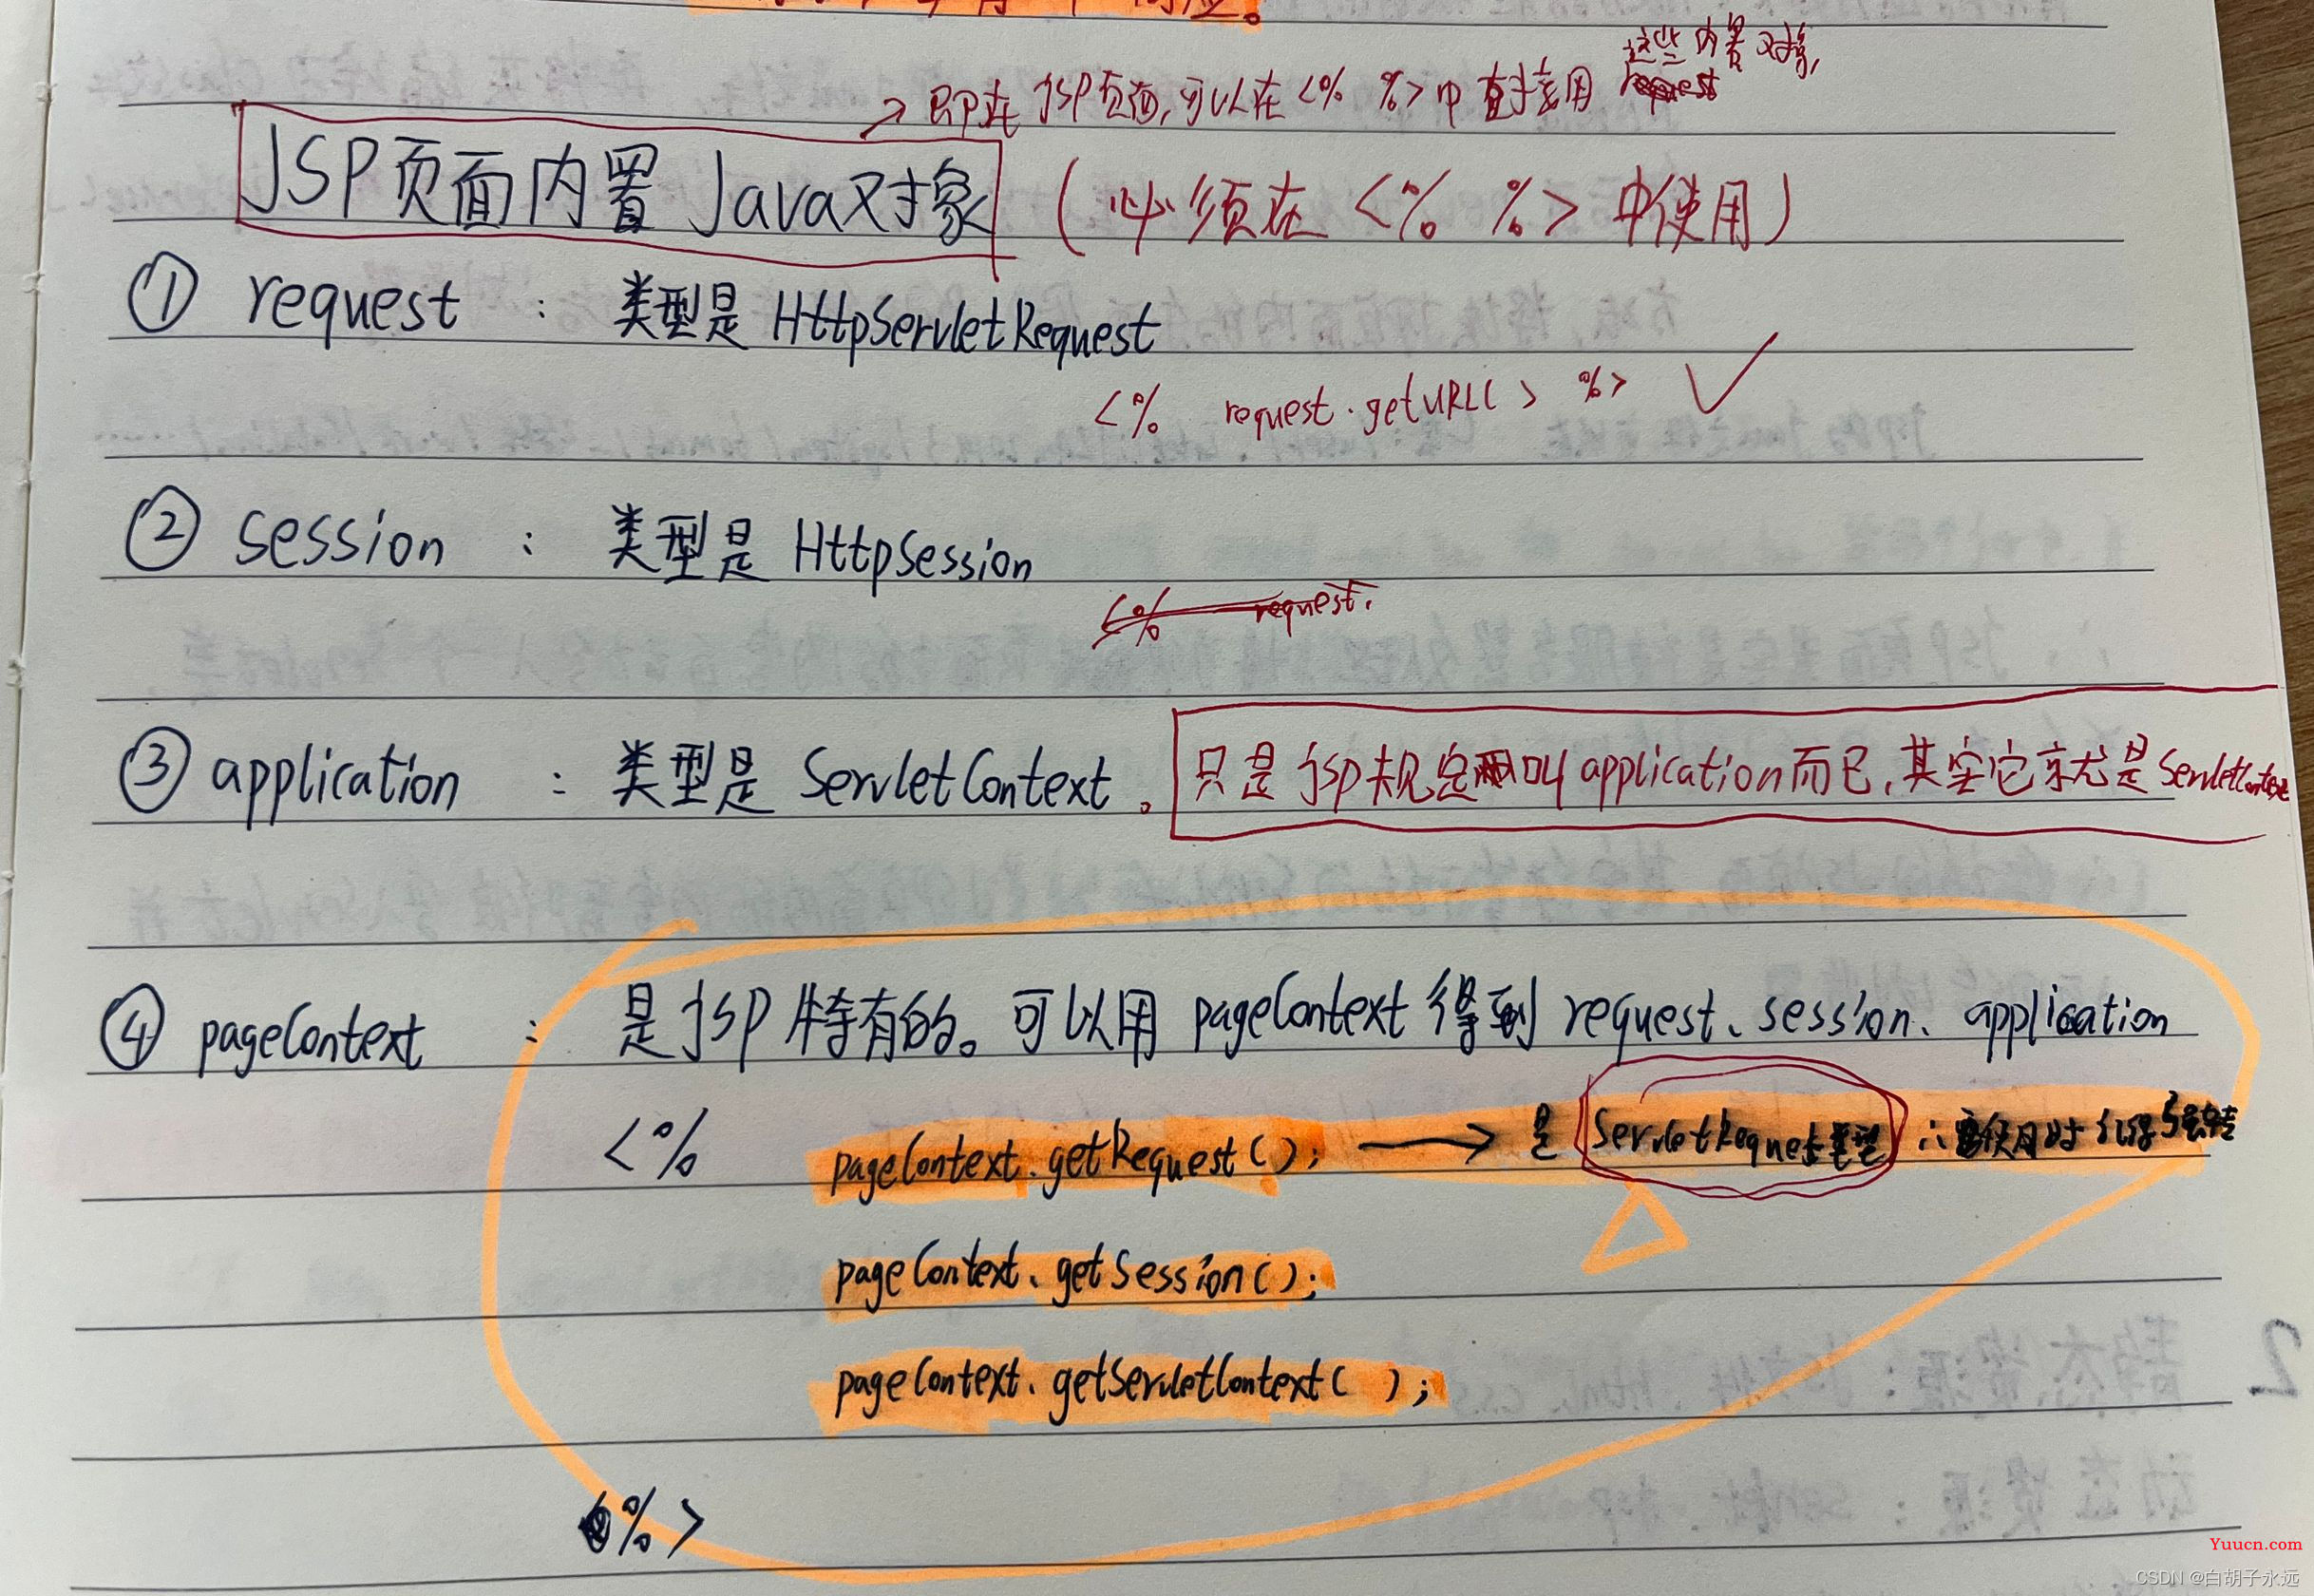 这些内置对象,
→ 即在 JSP页面,可以在<% %>中直接用 request
JSP页面内置 Java对象 (必须在 <% %> 中使用)
① request : 类型是 HttpServletRequest
<% request.getURL() %> ✓
② session : 类型是 HttpSession
<% request.
③ application : 类型是 ServletContext。 只是JSP规定叫application而已,其实它就是ServletContext
④ pageContext : 是JSP特有的。可以用 pageContext 得到 request、session、application
<% pageContext.getRequest(); → 是 ServletRequest类型 ∴使用时记得强转
pageContext.getSession();
pageContext.getServletContext( );
%>
Yuucn.com
CSDN @白胡子永远